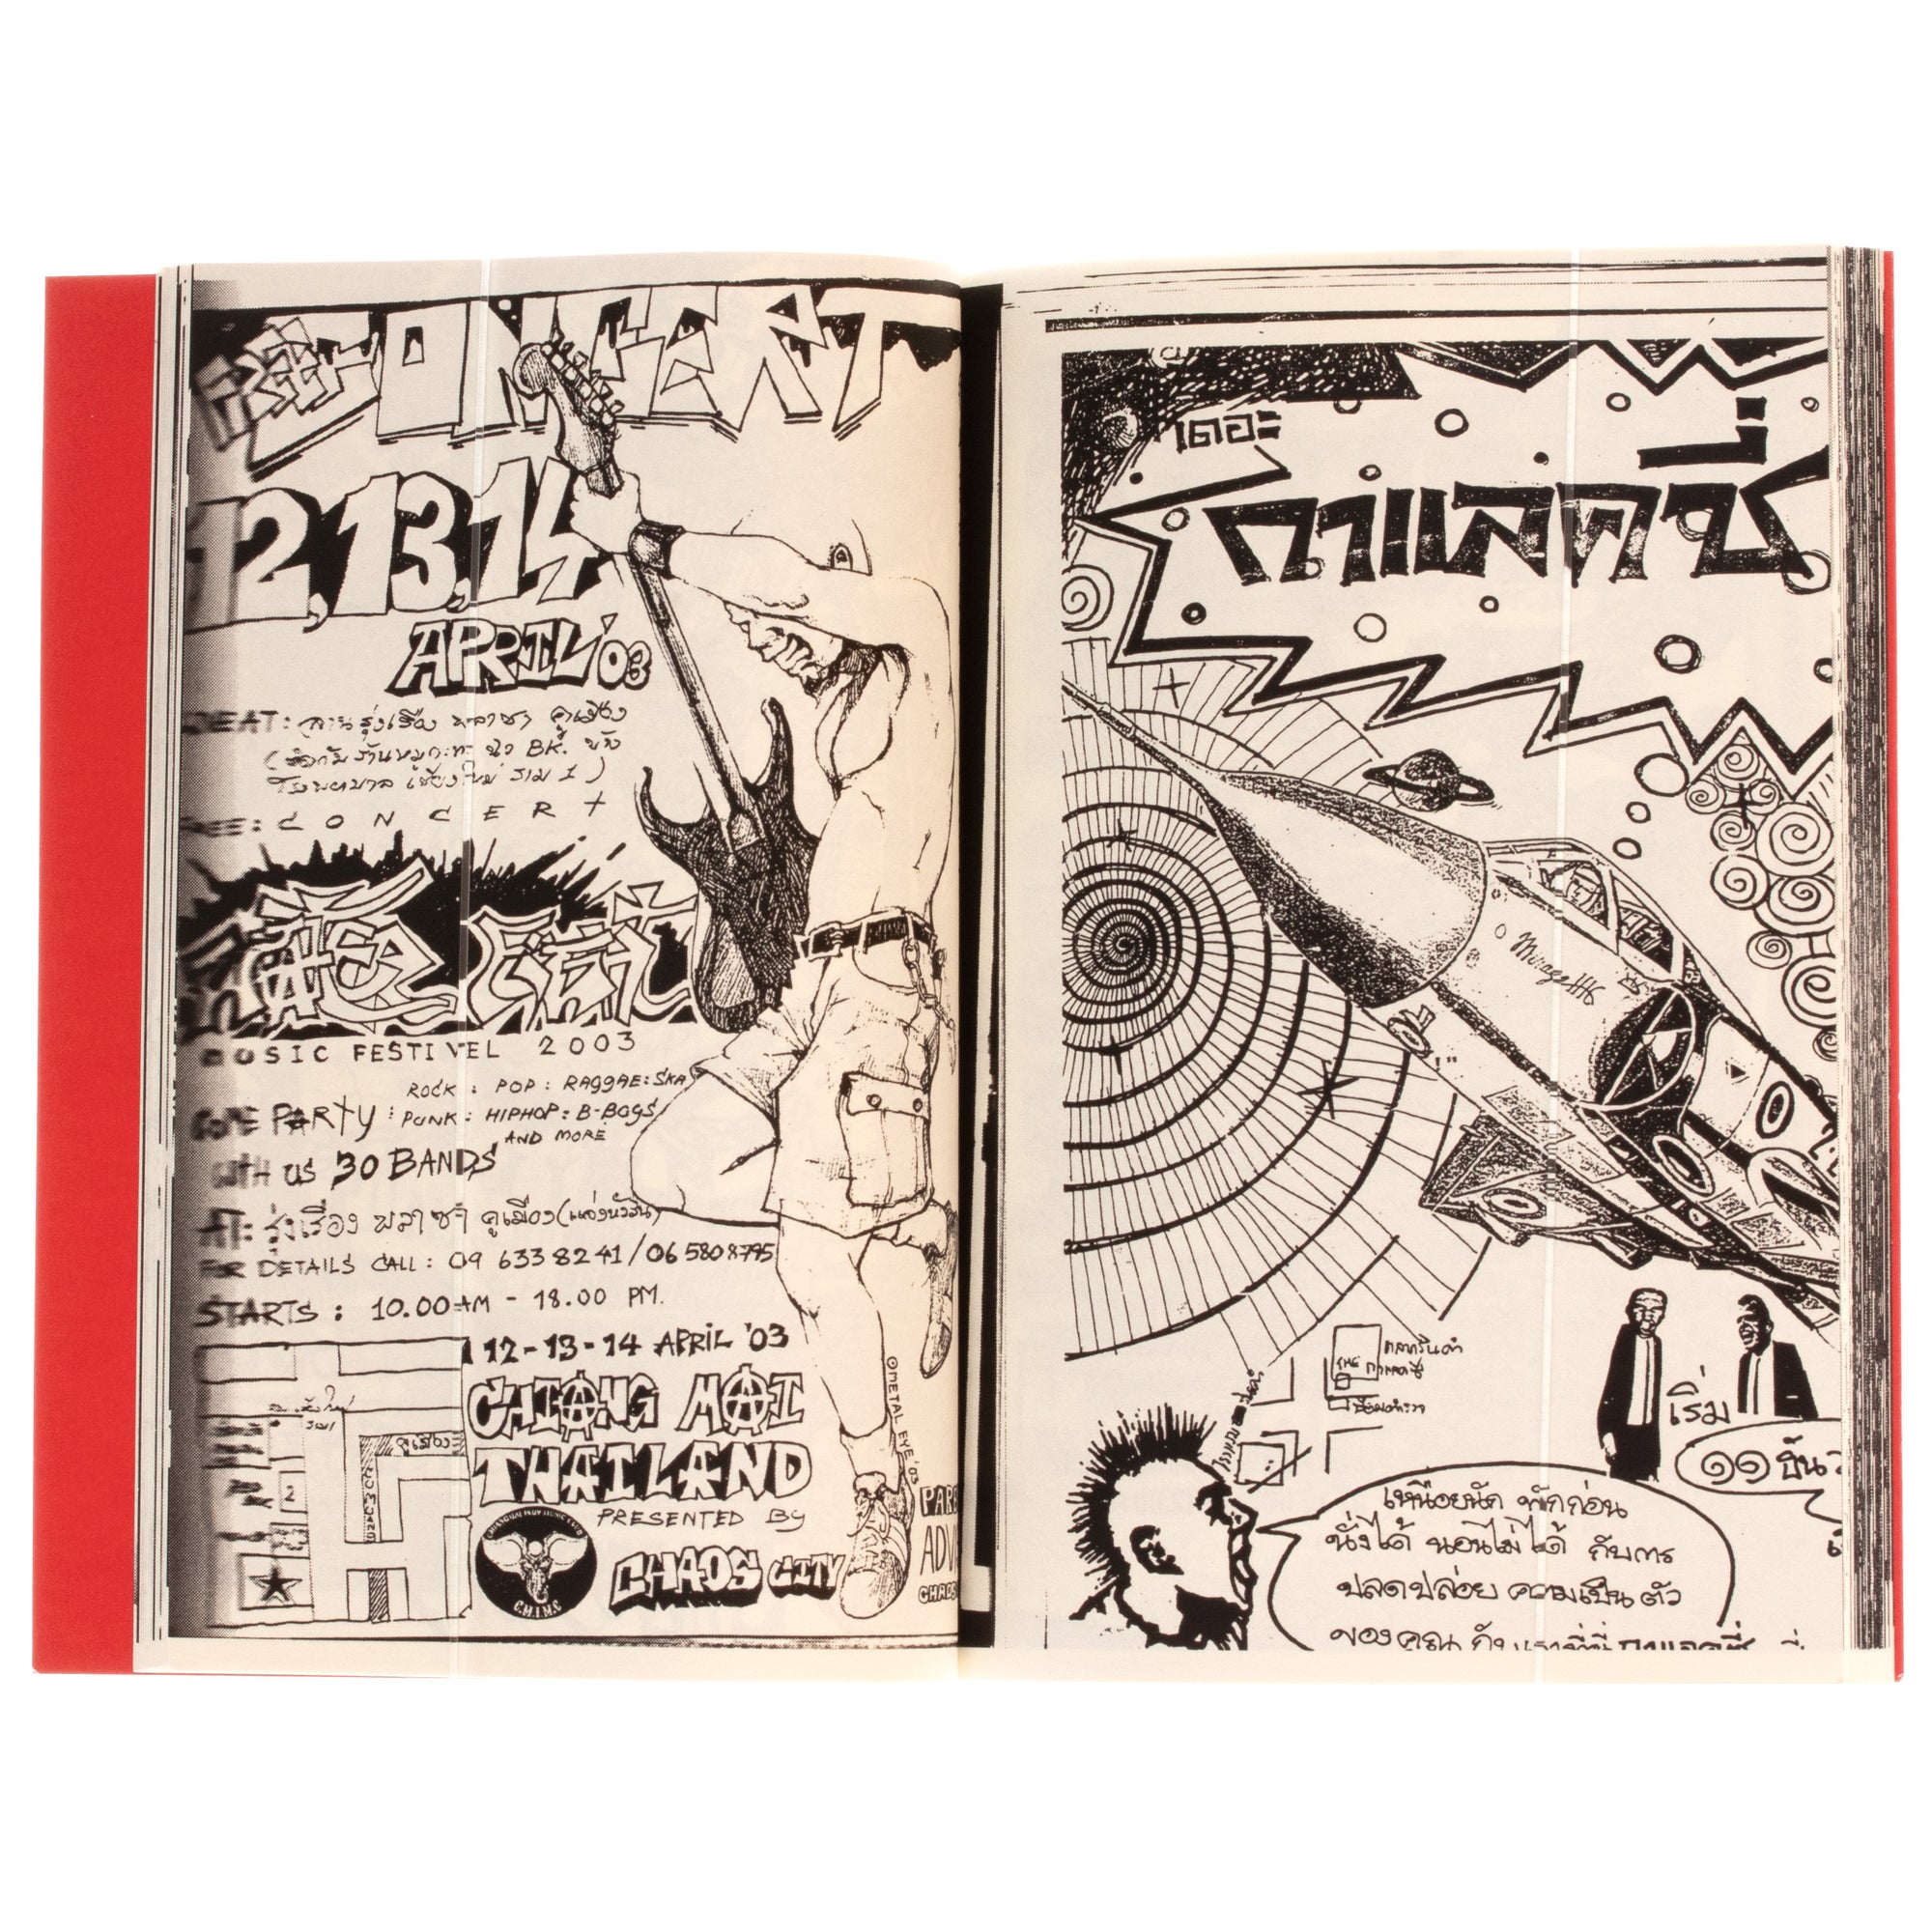 FREE CONCERT
12,13,14
APRIL '03
BEAT: ลานรุ่งเรือง พลาซา คูเมือง
BK.
โรงพยาบาล เชียงใหม่ ราม 1 )
FREE: CONCERT
MOSIC FESTIVEL 2003
ROCK : POP : RAGGAE: SKA
COME PARTY : PUNK : HIPHOP : B-BOGS
AND MORE
WITH US 30 BANDS
AT: รุ่งเรือง พลาซ่า คูเมือง (แจ่งหัวลิน)
FOR DETAILS CALL : 09 633 82 41 / 06 580 8795
STARTS : 10.00 AM - 18.00 PM.
12-13-14 APRIL '03
CHIANG MAI
THAILAND
PRESENTED BY
CHAOS CITY
C.H.I.M.C
คูเมือง
2
©METAL EYE '03
เดอะ
กาแลคซี่
Mirage
THE กาแลคซี่
เริ่ม
๑๑
เหนื่อยนัก พักก่อน
นั่งได้ นอนไม่ได้ กับการ
ปลดปล่อย ความเป็น ตัว
ของคุณ กับเราที่นี่ กาแลคซี่